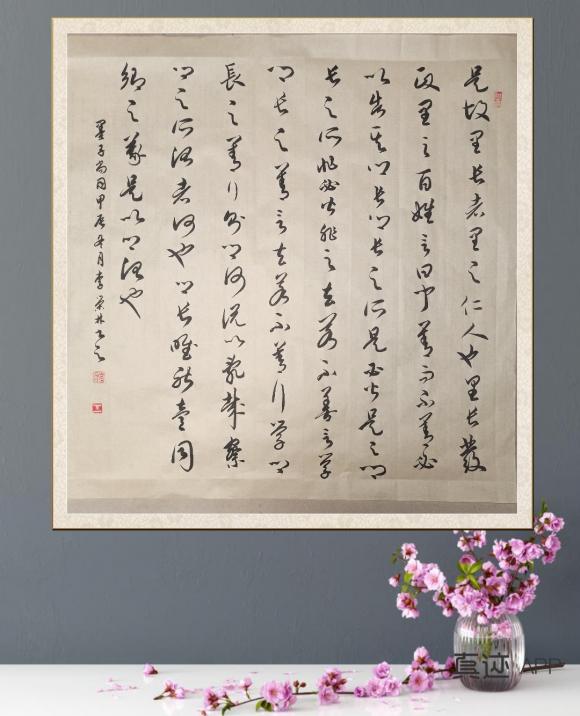 是故里長者里之仁人也里長發
政里之百姓言曰聞善而不善必
以告其鄉長鄉長之所是必皆是之鄉
長之所非必皆非之去若不善言學
鄉長之善言去若不善行學鄉
長之善行則鄉何說以亂哉察
鄉之所治者何也鄉長唯能壹同
鄉之義是以鄉治也
墨子尚同甲辰冬月李荣林
真迹 APP